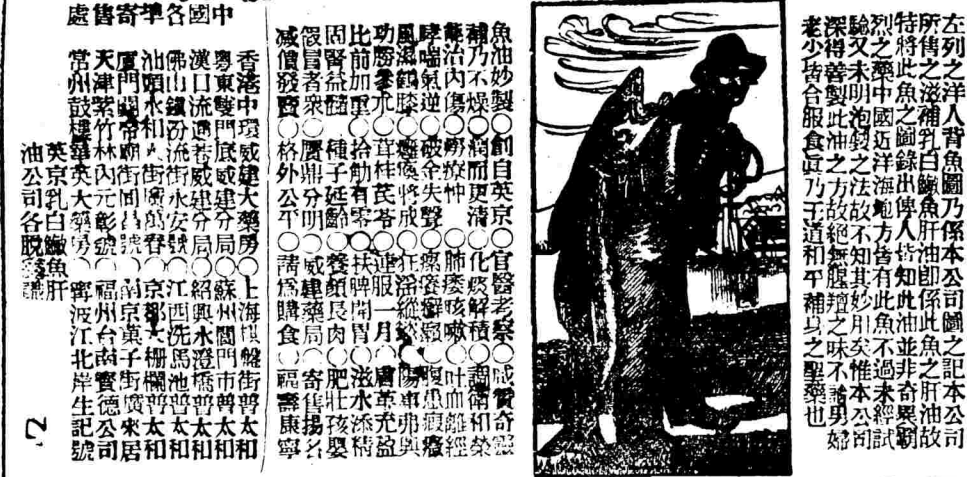 左列之洋人背魚圖乃係本公司之記本公司
所售之滋補乳白鰵魚肝油卽係此魚之肝油故
特將此魚之圖錄出俾人皆知此油並非奇異霸
烈之藥中國近洋海面方皆有此魚不過未經試
驗又未明泡製之法故不知其妙用矣惟本公司
深得善製此油之方故絕無腥羶之味不論男婦
老少皆合服食眞乃王道和平補身之聖藥也
魚油妙製○創自英京○官醫考察○咸贊奇靈
補乃不燥○潤而更淸○化痰解積○調衛和榮
能治內傷○癆瘵怔忡○肺痿咳嗽○吐血離經
哮喘氣逆○破金失聲○瘰癧癬癩○腹患
風濕鶴膝○癱瘓將成○
功勝參朮○茸桂芪苓○連服一月○膚革充盈
比前加重○拾觔有零○扶脾開胃○滋水添精
固腎益髓○種子延齡○養顏長肉○肥壯孩嬰
假冒者衆○贗鼎分明○威建藥局○寄售揚名
減價發賣○格外公平○請爲購食○福壽康寧
中國各埠寄售處
香港中環威建大藥房○上海棋盤街普太和
粵東雙門底威建分局○蘇州閶門市普太和
漢口流通巷威建分局○紹興水澄橋普太和
佛山鎭汾流街永安號○江西洗馬池普太和
汕頭水和大街廣萬春○京都大柵欄普太和
廈門關帝廟街同昌號○南京菓子街廣來居
天津紫竹林內元彰號○福州台南寶德公司
常州鼓樓華英大藥房○寧波江北岸生記號
英京乳白鰵魚肝
油公司各脫 謹